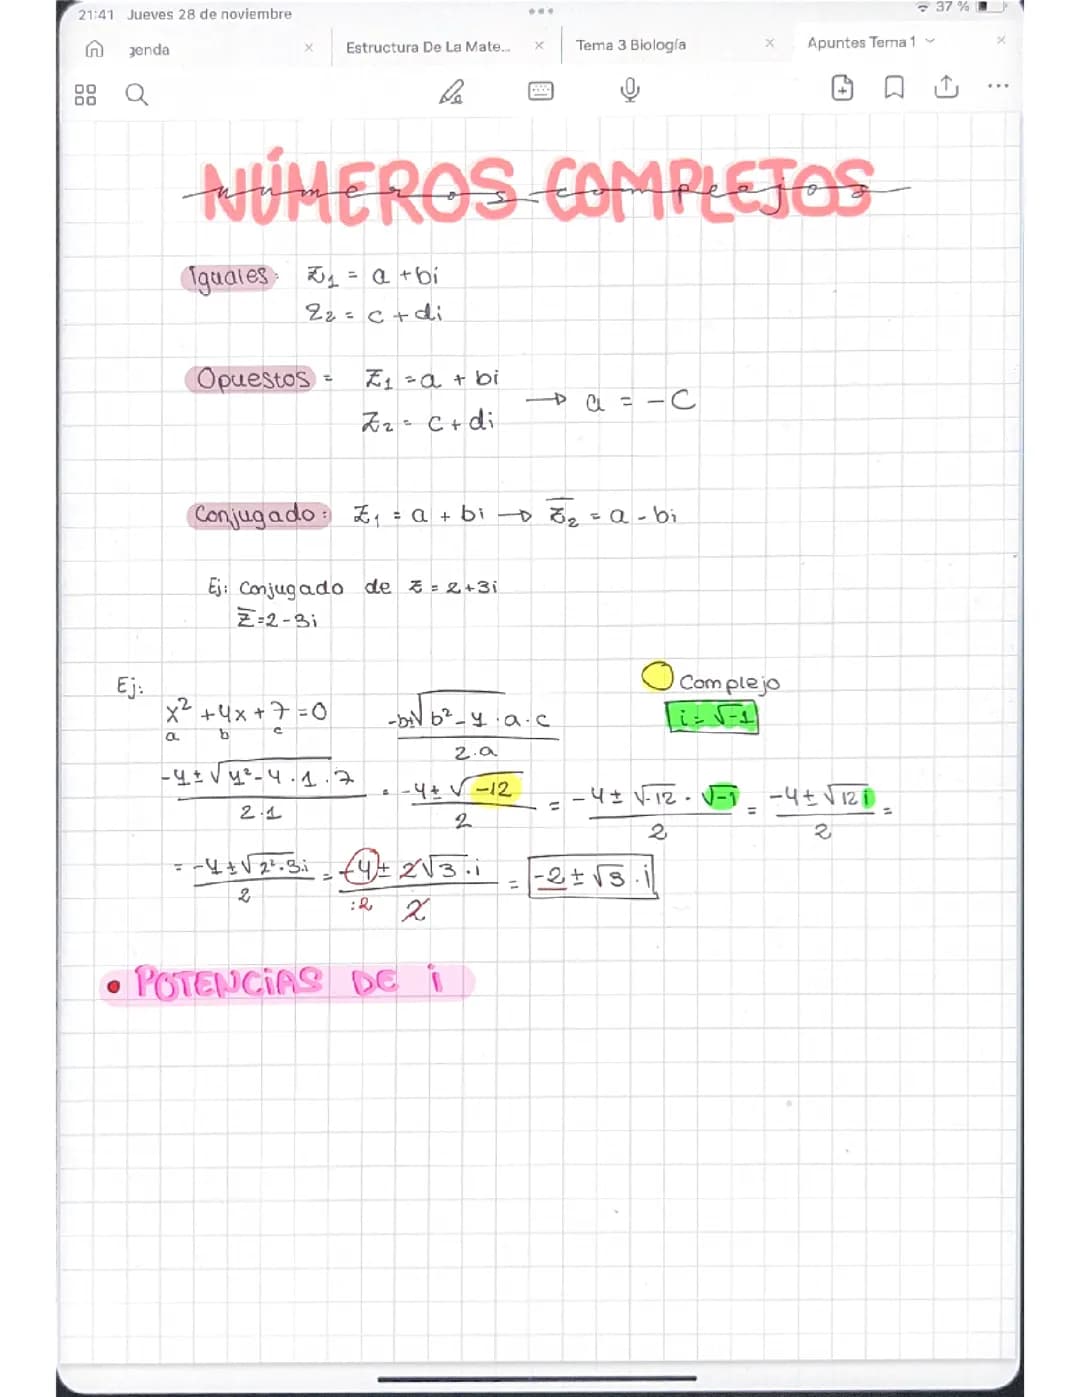 21:41 Jueves 28 de noviembre
37 %
genda
Estructura De La Mate...
Tema 3 Biología
Apuntes Tema 1
NÚMEROS COMPLEJOS
numeros complejos
Iguales: z₁ = a + bi
z₂ = c + di
Opuestos = z₁ = a + bi
→ a = -c
z₂ = c + di
Conjugado: z₁ = a + bi → z̅₂ = a - bi
Ej: Conjugado de z = 2+3i
z̅ = 2 - 3i
Ej:
Complejo
x² + 4x + 7 = 0
a b c
-b±√b²-4·a·c / 2·a
i = √-1
-4±√4²-4·1·7 / 2·1 = -4±√-12 / 2 = -4±√-12·√-1 / 2 = -4±√12 i / 2 =
= -4±√2²·3·i / 2 = -4±2√3·i / 2 = -2±√3·i
:2
• POTENCIAS DE i